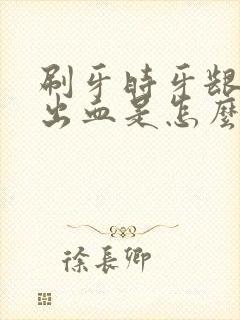 刷牙時牙龈
出血是怎麼
徐長卿